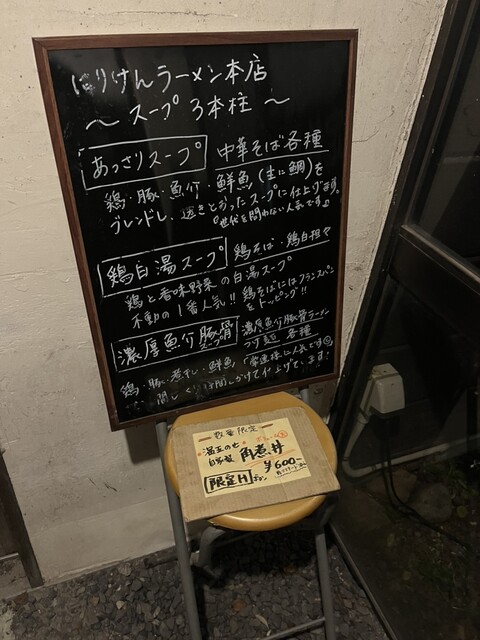 ばりけんラーメン本店
～ スープ 3本柱 ～
あっさりスープ 中華そば各種
鶏・豚・魚介・鮮魚(主に鯛)を
ブレンドし、透きとおったスープに仕上げます。
『世代を問わない人気です』
鶏白湯スープ 鶏そば・鶏白担々
鶏と香味野菜の白湯スープ
不動の1番人気!! 鶏そばにはフランスパン
をトッピング!!
濃厚魚介豚骨スープ 濃厚魚介豚骨ラーメン
つけ麺 各種
鶏・豚・煮干し・鮮魚 「常連様に人気です
時間しかけて仕上げて、ます!
数量限定
温玉のせ
自家製 角煮丼
¥600-
限定H ボタン